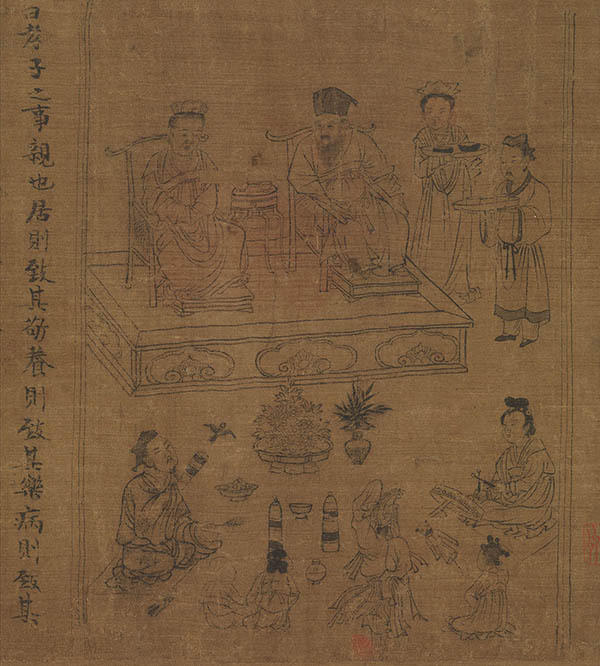 曰孝子之事親也居則致其敬養則致其樂病則致其